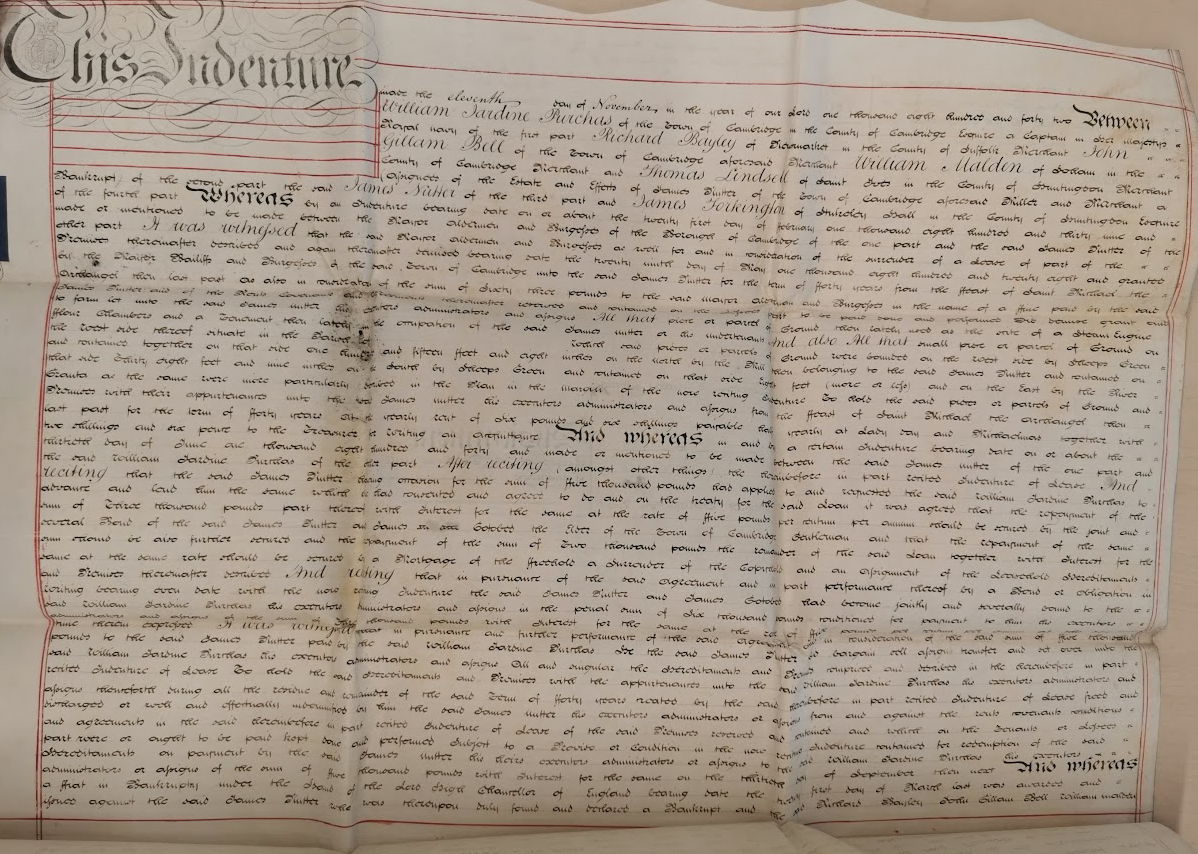 This Indenture
made the eleventh day of November in the year of our Lord one thousand eight hundred and forty two Between
William Jardine Purchas of the Town of Cambridge in the County of Cambridge Esquire a Captain in Her majestys
Royal navy of the first part Richard Bayley of Newmarket in the County of Suffolk Merchant John
Gillam Bell of the Town of Cambridge aforesaid Merchant William Malden of in the
County of Cambridge Merchant and Thomas Lindsell of Saint Ives in the County of Huntingdon Merchant
(Assignees of the Estate and Effects of James Nutter of the Town of Cambridge aforesaid Miller and Merchant a
Bankrupt) of the second part the said James Nutter of the third part and James Torkington of Stukeley Hall in the County of Huntingdon Esquire
of the fourth part Whereas by an Indenture bearing date on or about the twenty first day of february one thousand eight hundred and thirty nine and
made or mentioned to be made between the Mayor Aldermen and Burgesses of the Borough of Cambridge of the one part and the said James Nutter of the
other part It was witnessed that the said Mayor Aldermen and Burgesses as well for and in consideration of the surrender of a Lease of part of the
Premises thereinafter described and again thereinafter demised bearing date the twenty ninth day of May one thousand eight hundred and twenty eight and granted
by the Mayor Bailiffs and Burgesses of the said Town of Cambridge unto the said James Nutter for the term of forty years from the feast of Saint Michael the
Archangel then last past as also in consideration of the sum of Sixty three pounds to the said mayor aldermen and Burgesses in the name of a fine paid by the said
James Nutter and of the Rents Covenants and thereinafter reserved and contained on the to be paid done and performed Did demise grant and
to farm let unto the said James Nutter his executors administrators and assigns All that piece or parcel of Ground then lately used as the site of a Steam Engine
flour Chambers and a Tenement then lately in the occupation of the said James Nutter or his undertenants And also All that small piece or parcel of Ground on
the West side thereof situate in the Parish of which said pieces or parcels of Ground were bounded on the West side by Sheeps Green
and contained together on that side one hundred and fifteen feet and eight inches on the north by the Mill then belonging to the said James Nutter and contained on
that side Thirty eight feet and nine inches on the South by Sheeps Green and contained on that side Eighty feet (more or less) and on the East by the River
Granta as the same were more particularly described in the Plan in the margin of the now reciting Indenture To hold the said pieces or parcels of Ground and
Premises with their appurtenances unto the said James Nutter his executors administrators and assigns from the feast of Saint Michael the Archangel then
last past for the term of forty years at the yearly rent of Six pounds and six shillings payable half yearly at Lady day and Michaelmas together with
two shillings and six pence to the Treasurer for writing an acquittance And whereas in and by a certain Indenture bearing date on or about the
thirtieth day of June one thousand eight hundred and forty and made or mentioned to be made between the said James Nutter of the one part and
the said William Jardine Purchas of the other part After reciting (amongst other things) the hereinbefore in part recited Indenture of Lease And
reciting that the said James Nutter having occasion for the sum of five thousand pounds had applied to and requested the said William Jardine Purchas to
advance and lend him the same which he had consented and agreed to do and on the treaty for the said Loan it was agreed that the repayment of the
sum of Three thousand pounds part thereof with Interest for the same at the rate of five pounds per centum per annum should be secured by the joint and
several Bond of the said James Nutter and James October the Elder of the Town of Cambridge Gentleman and that the repayment of the same
sum should be also further secured and the repayment of the sum of Two thousand pounds the remainder of the said Loan together with Interest for the
same at the same rate should be secured by a Mortgage of the freehold a Surrender of the Copyhold and an assignment of the Leasehold Hereditaments
and Premises thereinafter described And reciting that in pursuance of the said agreement and in part performance thereof by a Bond or obligation in
writing bearing even date with the now reciting Indenture the said James Nutter and James October had become jointly and severally bound to the
said William Jardine Purchas his executors administrators and assigns in the penal sum of Six thousand pounds conditioned for payment to him his executors
administrators and assigns of the sum of three thousand pounds with Interest for the same at the rate of five pounds per centum per annum
time therein expressed It was witnessed that in pursuance and further performance of the said agreement and in consideration of the said sum of five thousand
pounds to the said James Nutter paid by the said William Jardine Purchas He the said James Nutter did bargain sell assign transfer and set over unto the
said William Jardine Purchas his executors administrators and assigns All and singular the Hereditaments and Premises comprised and described in the hereinbefore in part
recited Indenture of Lease To hold the said Hereditaments and Premises with the appurtenances unto the said William Jardine Purchas his executors administrators and
assigns thenceforth during all the residue and remainder of the said Term of forty years created by the said hereinbefore in part recited Indenture of Lease freed and
discharged or well and effectually indemnified by him the said James Nutter his executors administrators or assigns from and against the rents covenants conditions
and agreements in the said hereinbefore in part recited Indenture of Lease of the said Premises reserved and contained and which on the Tenants or Lessees
part were or ought to be paid kept done and performed Subject to a Proviso or Condition in the now reciting Indenture contained for redemption of the said
Hereditaments on payment by the said James Nutter his heirs executors administrators or assigns to the said William Jardine Purchas his executors
administrators or assigns of the sum of five thousand pounds with Interest for the same on the thirtieth day of September then next And whereas
a fiat in Bankruptcy under the Hand of the Lord High Chancellor of England bearing date the twenty first day of March last was awarded and
issued against the said James Nutter who was thereupon duly found and declared a Bankrupt and the said Richard Bayley John Gillam Bell William Malden